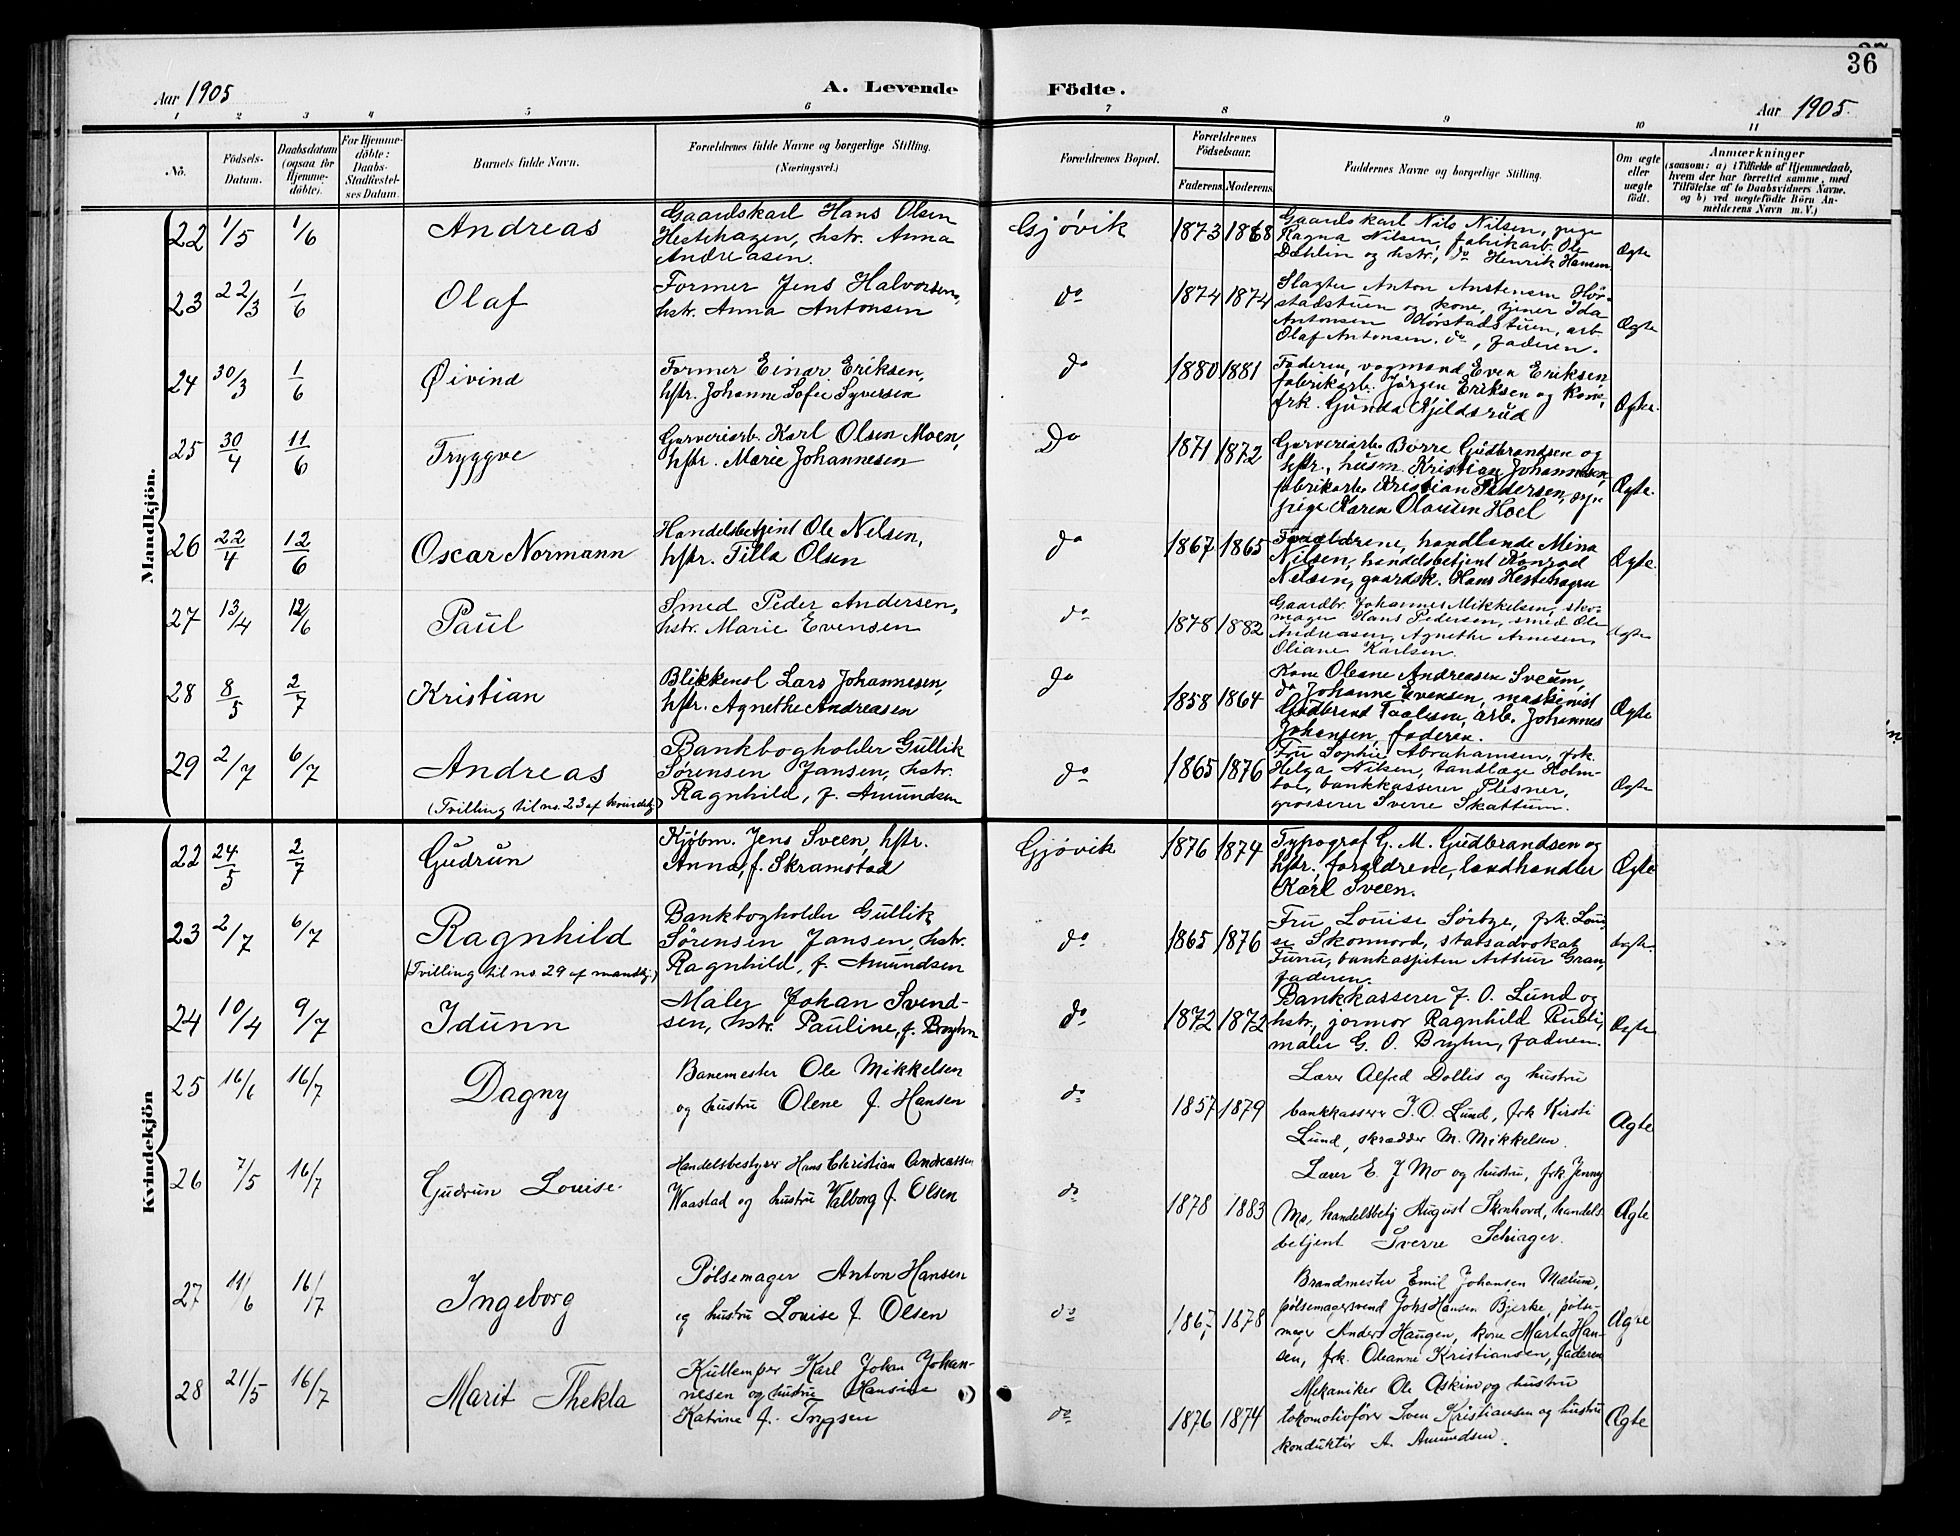 36
Aar 1905
A. Levende Födte.
Aar 1905.
1 2 3 4 5 6 7 8 9 10 11
No.
Födsels-
Datum.
Daabsdatum
(ogsaa for
Hjemme-
döbte).
For Hjemme-
döbte:
Daabs-
Stadfæstel-
ses Datum
Barnets fulde Navn.
Forældrenes fulde Navne og borgerlige Stilling.
(Næringsvei.)
Forældrenes Bopæl.
Forældrenes
Födselsaar.
Faderens Moderens
Faddernes Navne og borgerlige Stilling.
Om ægte
eller
uægte
födt.
Anmærkninger
(saasom: a) i Tilfælde af Hjemmedaab,
hvem der har forrettet samme, med
Tilföielse af to Daabsvidners Navne,
og b) ved uægtefödte Börn An-
melderens Navn m. V.)
Mandkjön.
22 1/5 1/6 Andreas
Gaardskarl Hans Olsen
Hestehagen, hstr. Anna
Andreasen.
Gjøvik 1873 1868
Gaardskarl Nils Nilsen, pige
Ragna Nilsen, fabrikarb. Ole
Dæhlin og hstr., do Henrik Hansen
Ægte
23 22/3 1/6 Olaf
Former Jens Halvorsen,
hstr. Anna Antonsen
do 1874 1874
Slagter Anton Anstensen Hör-
stadstuen og kone, tjener Ida
Antonsen Hörstadstuen, arb.
Olaf Antonsen. do, faderen.
Ægte
24 30/3 1/6 Øivind
Former Einar Eriksen,
hstr. Johanne Sofie Syversen
do 1880 1881
Faderen, vognmand Even Eriksen
fabrikarb. Jörgen Eriksen og kone,
frk. Gunda Kjeldsrud
Ægte.
25 30/4 11/6 Tryggve
Garveriarb. Karl Olsen Moen,
hstr. Marie Johannesen
Do 1871 1872
Garveriarb. Börre Gudbrandsen og
hstr., husm. Kristian Johannesen,
fabrikarb. Kristian Pedersen,
pige Karen Olousen Hoel
Ægte.
26 22/4 12/6 Oscar Normann
Handelsbetjent Ole Nilsen,
hstr. Tilla Olsen
do 1867 1865
Forældrene, handlende Mina
Nilsen, handelsbetjent Konrad
Nelsen, gaardsk. Hans Hestehagen
Ægte.
27 13/4 12/6 Paul
Smed Peder Andersen,
hstr. Marie Evensen
do 1878 1882
Gaardbr. Johannes Mikkelsen, sko-
mager Hans Pedersen, smed Ole
Andreasen, Agnethe Arnesen,
Oliane Karlsen.
Ægte
28 8/5 2/7 Kristian
Blikkensl Lars Johannesen,
hstr. Agnethe Andreasen
do 1858 1864
Kone Oleane Andreasen Sveum,
do Johanne Evensen, maskinist
Gudbrand Paulsen, arb. Johannes
Johansen, faderen.
Ægte
29 2/7 6/7 Andreas
(Tvilling til no. 23 af kvindekj)
Bankbogholder Gullik
Sörensen Jansen, hstr.
Ragnhild, f. Amundsen
do 1865 1876
Fru Sophie Abrahamsen, frk.
Helga Nilsen, tandlæge Holm-
boe, bankkasserer Plesner,
grosserer Sverre Skattum.
Ægte
Kvindekjön
22 24/5 2/7 Gudrun
Kjøbm. Jens Sveen, hstr.
Anna, f. Skramstad
Gjøvik 1876 1874
Typograf G. M. Gudbrandsen og
hstr., forældrene, landhandler
Karl Sveen.
Ægte
23 2/7 6/7 Ragnhild
(Tvilling til no 29 af mandkj.)
Bankbogholder Gullik
Sörensen Jansen, hstr.
Ragnhild, f. Amundsen
do 1865 1876
Fru Louise Sörbye, frk. Loui-
se Skonnord, statsadvokat
Furu, bankassistent Arthur Gran,
faderen.
Ægte
24 10/4 9/7 Idunn
Maler Johan Svend-
sen, hstr. Pauline, f. Bryhn
do 1872 1872
Bankkasserer J. O. Lund og
hstr., jormor Ragnhild
maler G. O. Bryhn, faderen.
Ægte
25 16/6 16/7 Dagny
Banemester Ole Mikkelsen
og hustru Olene f. Hansen
do 1857 1879
Lærer Alfred Dollis og hustru
bankkasserer J. O. Lund, frk Kirsti
Lund, skrædder M. Mikkelsen.
Ægte
26 7/5 16/7 Gudrun Louise.
Handelsbestyrer Hans Christian Andreassen
Waastad og hustru Valborg f. Olsen
do 1878 1883
Lærer E. J Mo og hustru, frk Jenny
Mo, handelsbetj August Skonhovd, handels-
betjent Sverre Schiager.
Ægte
27 11/6 16/7 Ingeborg
Pølsemager Anton Hansen
og hustru Louise f. Olsen
do 1878
Brandmester Emil Johansen Mælum,
pølsemagersvend Johs Hansen Bjerke, pølse-
mager Anders Haugen, kone Marta Han-
sen, frk. Oleanne Kristiansen, faderen
Ægte
28 21/5 16/7 Marit Thekla
Kullemper Karl Johan Johan-
nesen og hustru Hansine
Katrine f. Trygsen
do 1876 1874
Mekaniker Ole Askim og hustru
lokomotivfører Sven Kristiansen og hustru
konduktør A. Amundsen.
Ægte